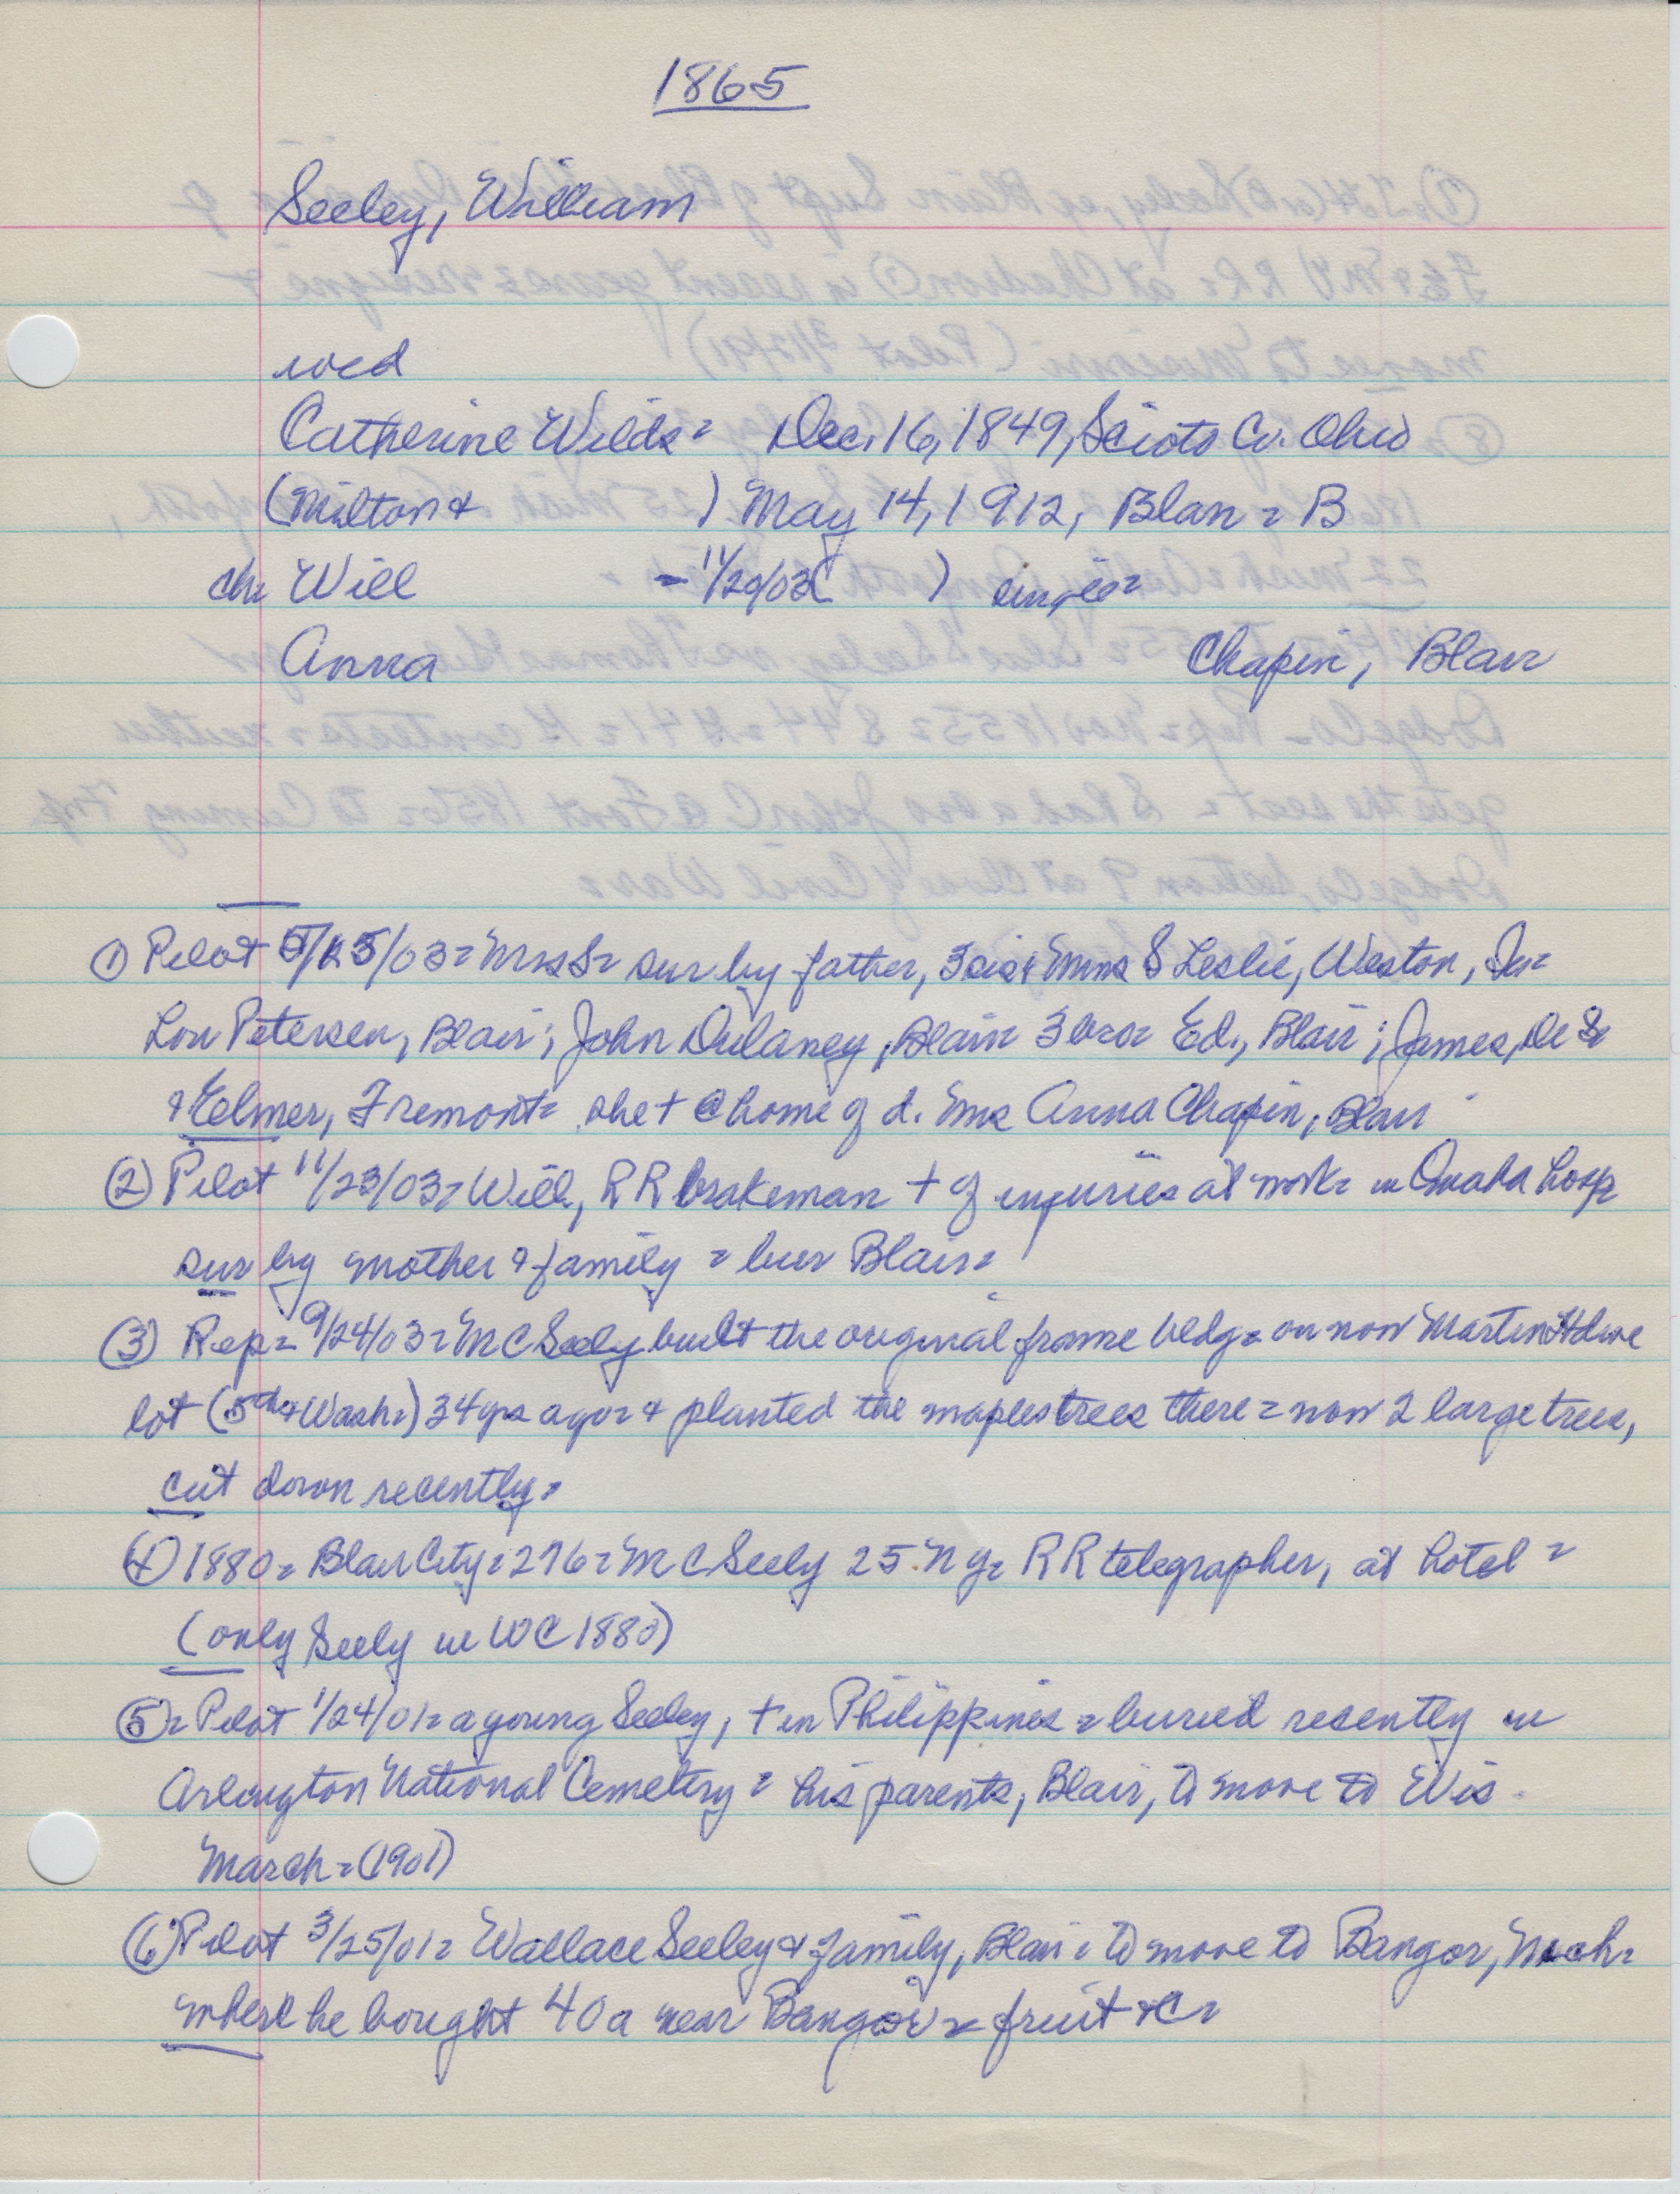 1865
Seeley, William
wed
Catherine Wilds = Dec. 16, 1849, Scioto Co. Ohio
(Milton & ) May 14, 1912, Blair = B
ch = Will - 11/20/03 ( ) single =
Anna Chapin, Blair
① Pilot /03 = Mrs S = sur by father, 3 sis = Mmes S Leslie, Weston, Ia =
Lou Petersen, Blair; John Dulaney, Blair = 3 bro = Ed., Blair; James, De S =
& Elmer, Fremont = she + @ home of d. Mrs Anna Chapin, Blair
② Pilot 11/23/03 = Will, RR brakeman + of injuries at work = in Omaha hosp
sur by mother & family = bur Blair =
③ Rep = 9/24/03 = M C Seely built the original frame bldg = on now Martin Hdwe
lot (5th & Wash =) 34 yrs ago = & planted the maple trees there = now 2 large trees,
cut down recently =
④ 1880 = Blair City = 276 = M C Seely 25 N Y = RR telegrapher, at hotel =
(only Seely in WC 1880)
⑤ = Pilot 1/24/01 = a young Seeley, + in Philippines = buried recently in
Arlington National Cemetery = his parents, Blair, to move to Wis.
March = (1901)
⑥ Pilot 3/25/01 = Wallace Seeley & family, Blair = to move to Bangor, Mich =
where he bought 40 a near Bangor = fruit &c =